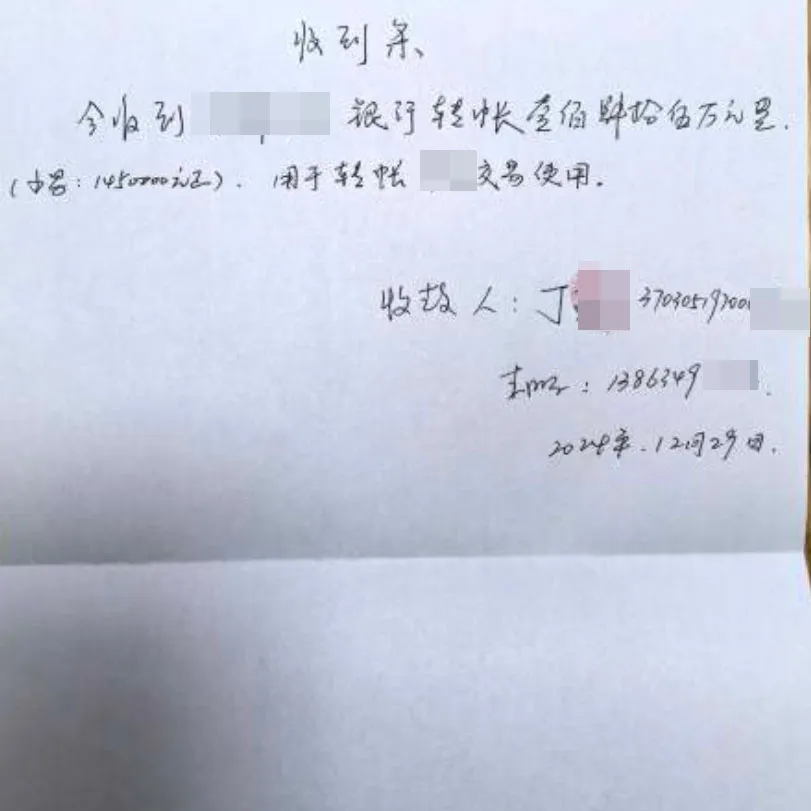 收到条
今收到 银行转帐壹佰肆拾伍万元整.
(小写:1450000元正). 用于转帐 交易使用.
收款人:丁 3703051970
手机:1386349
2024年.12月29日.